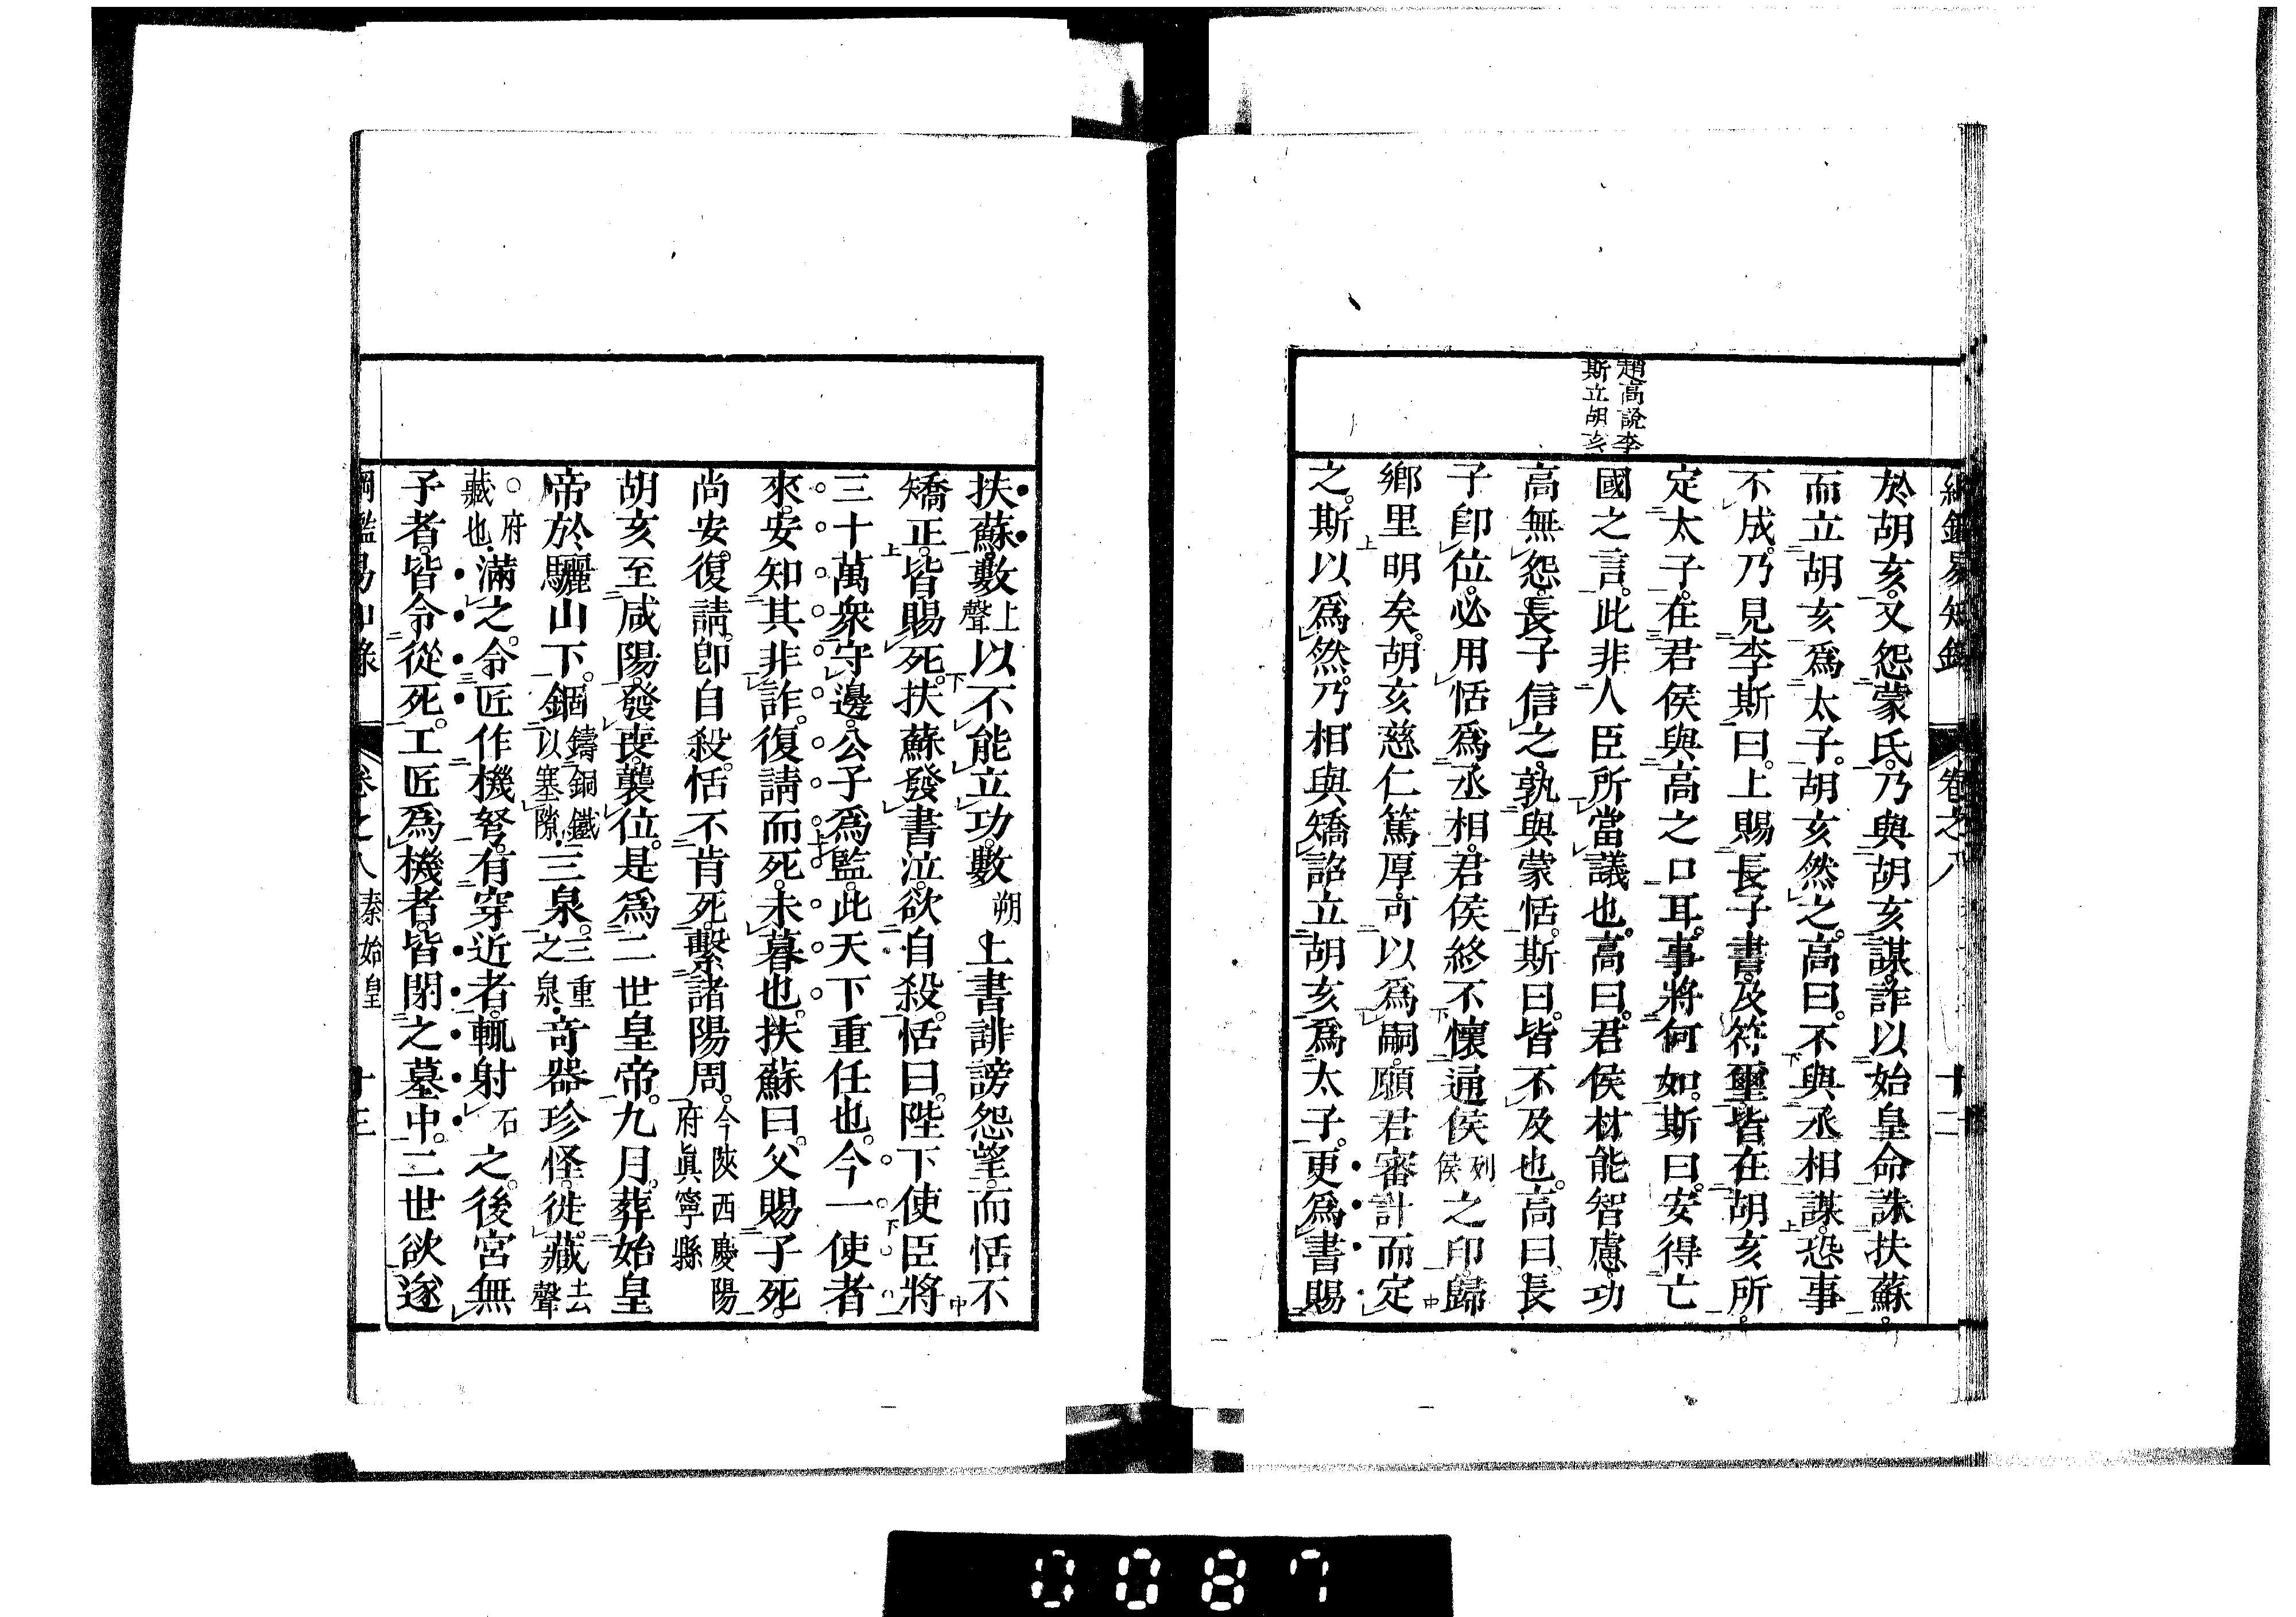 綱鑑易知錄 卷之八 十二
趙高說李
斯立胡亥
於胡亥。又怨蒙氏。乃與胡亥謀。詐以始皇命誅扶蘇。
而立胡亥爲太子。胡亥然之。高曰。不與丞相謀。恐事
不成。乃見李斯曰。上賜長子書。及符璽。皆在胡亥所。
定太子。在君侯與高之口耳。事將何如。斯曰。安得亡
國之言。此非人臣所當議也。高曰。君侯材能智慮。功
高無怨。長子信之。孰與蒙恬。斯曰。皆不及也。高曰。長
子卽位。必用恬爲丞相。君侯終不懷通侯列侯之印。歸
鄉里明矣。胡亥慈仁篤厚。可以爲嗣。願君審計而定
之。斯以爲然。乃相與矯詔立胡亥爲太子。更爲書賜
扶蘇。數上聲以不能立功。數朔上書誹謗怨望。而恬不
矯正。皆賜死。扶蘇發書泣。欲自殺。恬曰。陛下使臣將
三十萬衆守邊。公子爲監。此天下重任也。今一使者
來。安知其非詐。復請而死。未暮也。扶蘇曰。父賜子死。
尚安復請。卽自殺。恬不肯死。繫諸陽周。今陝西慶陽府眞寧縣
胡亥至咸陽。發喪。襲位。是爲二世皇帝。九月。葬始皇
帝於驪山下。錮鑄銅鐵以塞隙三泉。三重之泉奇器珍怪。徙藏去聲
府藏也滿之。令匠作機弩。有穿近者。輒射石之。後宮無
子者。皆令從死。工匠爲機者。皆閉之墓中。二世欲遂
綱鑑易知錄 卷之八 秦始皇 十三
0087